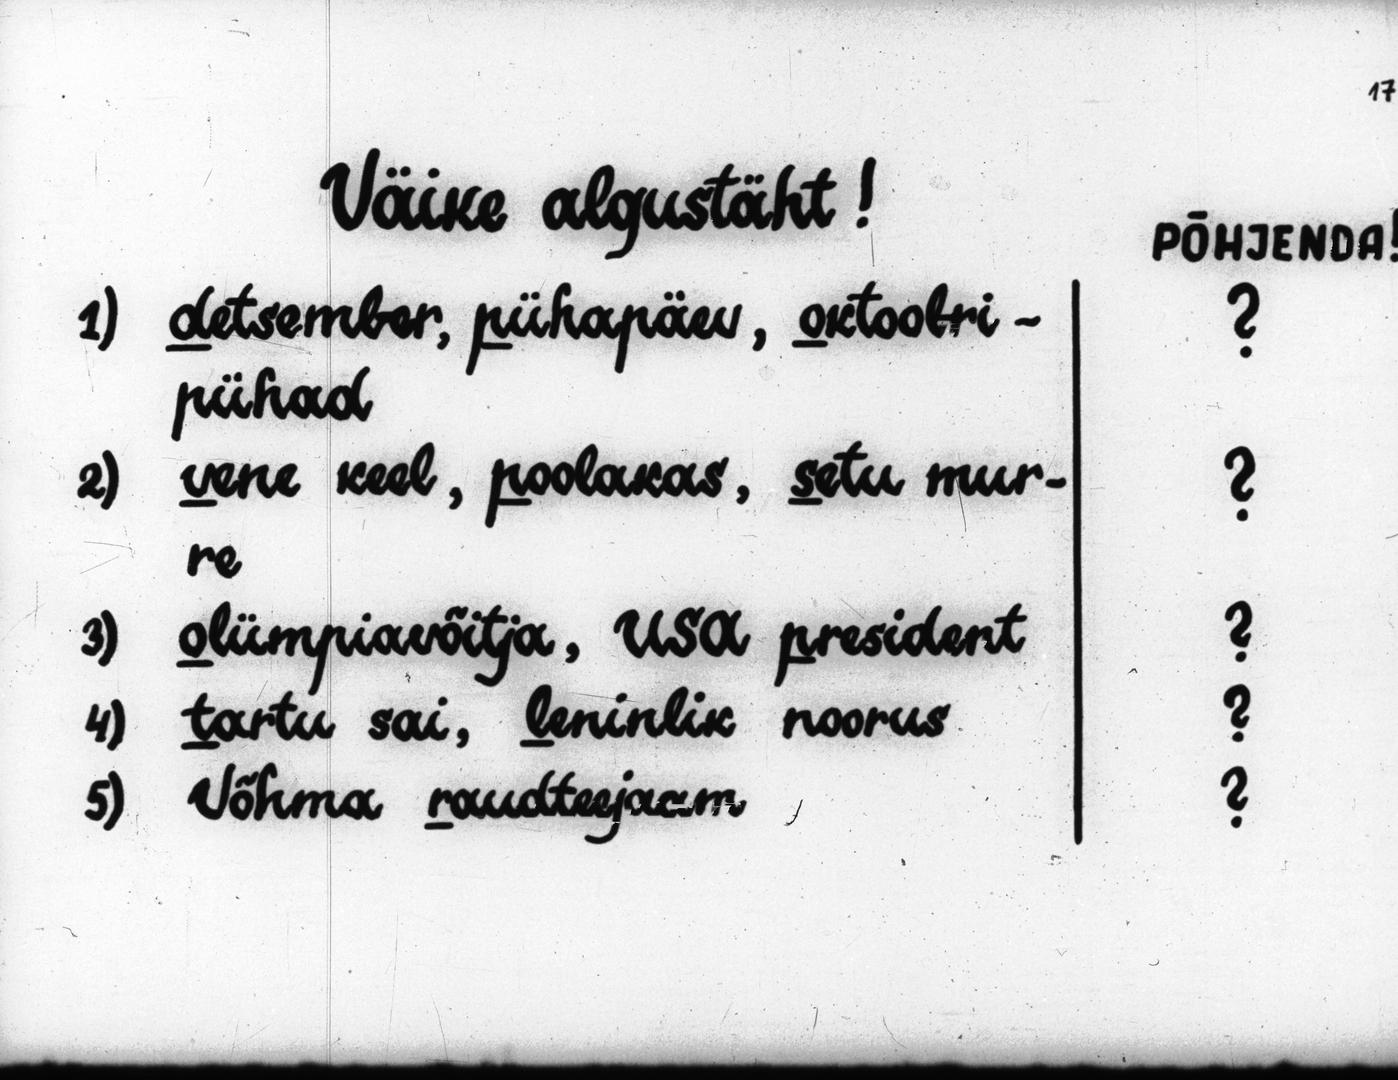 17
Väike algustäht!
PÕHJENDA!
1) detsember, pühapäev, oktoobri- ?
pühad
2) vene keel, poolakas, setu mur- ?
re
3) olümpiavõitja, USA president ?
4) tartu sai, leninlik noorus ?
5) Võhma raudteejaam ?